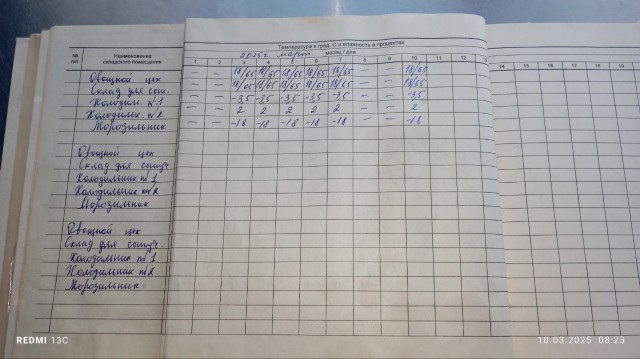 Температура в град. С и влажность в процентах
№ п/п Наименование складского помещения 2025г март месяц / дни
1 2 3 4 5 6 7 8 9 10 11 12 13 14 15 16 17 18 19
Овощной цех — — 18/65 18/65 18/65 18/65 18/65 — — 18/65
Склад для сып. — — 18/65 18/65 18/65 18/65 18/65 — — 18/65
Холодил. №1 — — -3,5 -3,5 -3,5 -3,5 -3,5 — — -3,5
Холодильн. №2 — — 2 2 2 2 2 — — 2
Морозильник -18 -18 -18 -18 -18 — — -18
Овощной цех
Склад для сыпуч
Холодильник №1
Холодильник №2
Морозильник
Овощной цех
Склад для сыпуч
Холодильник №1
Холодильник №2
Морозильник
REDMI 13C
10.03.2025 08:23